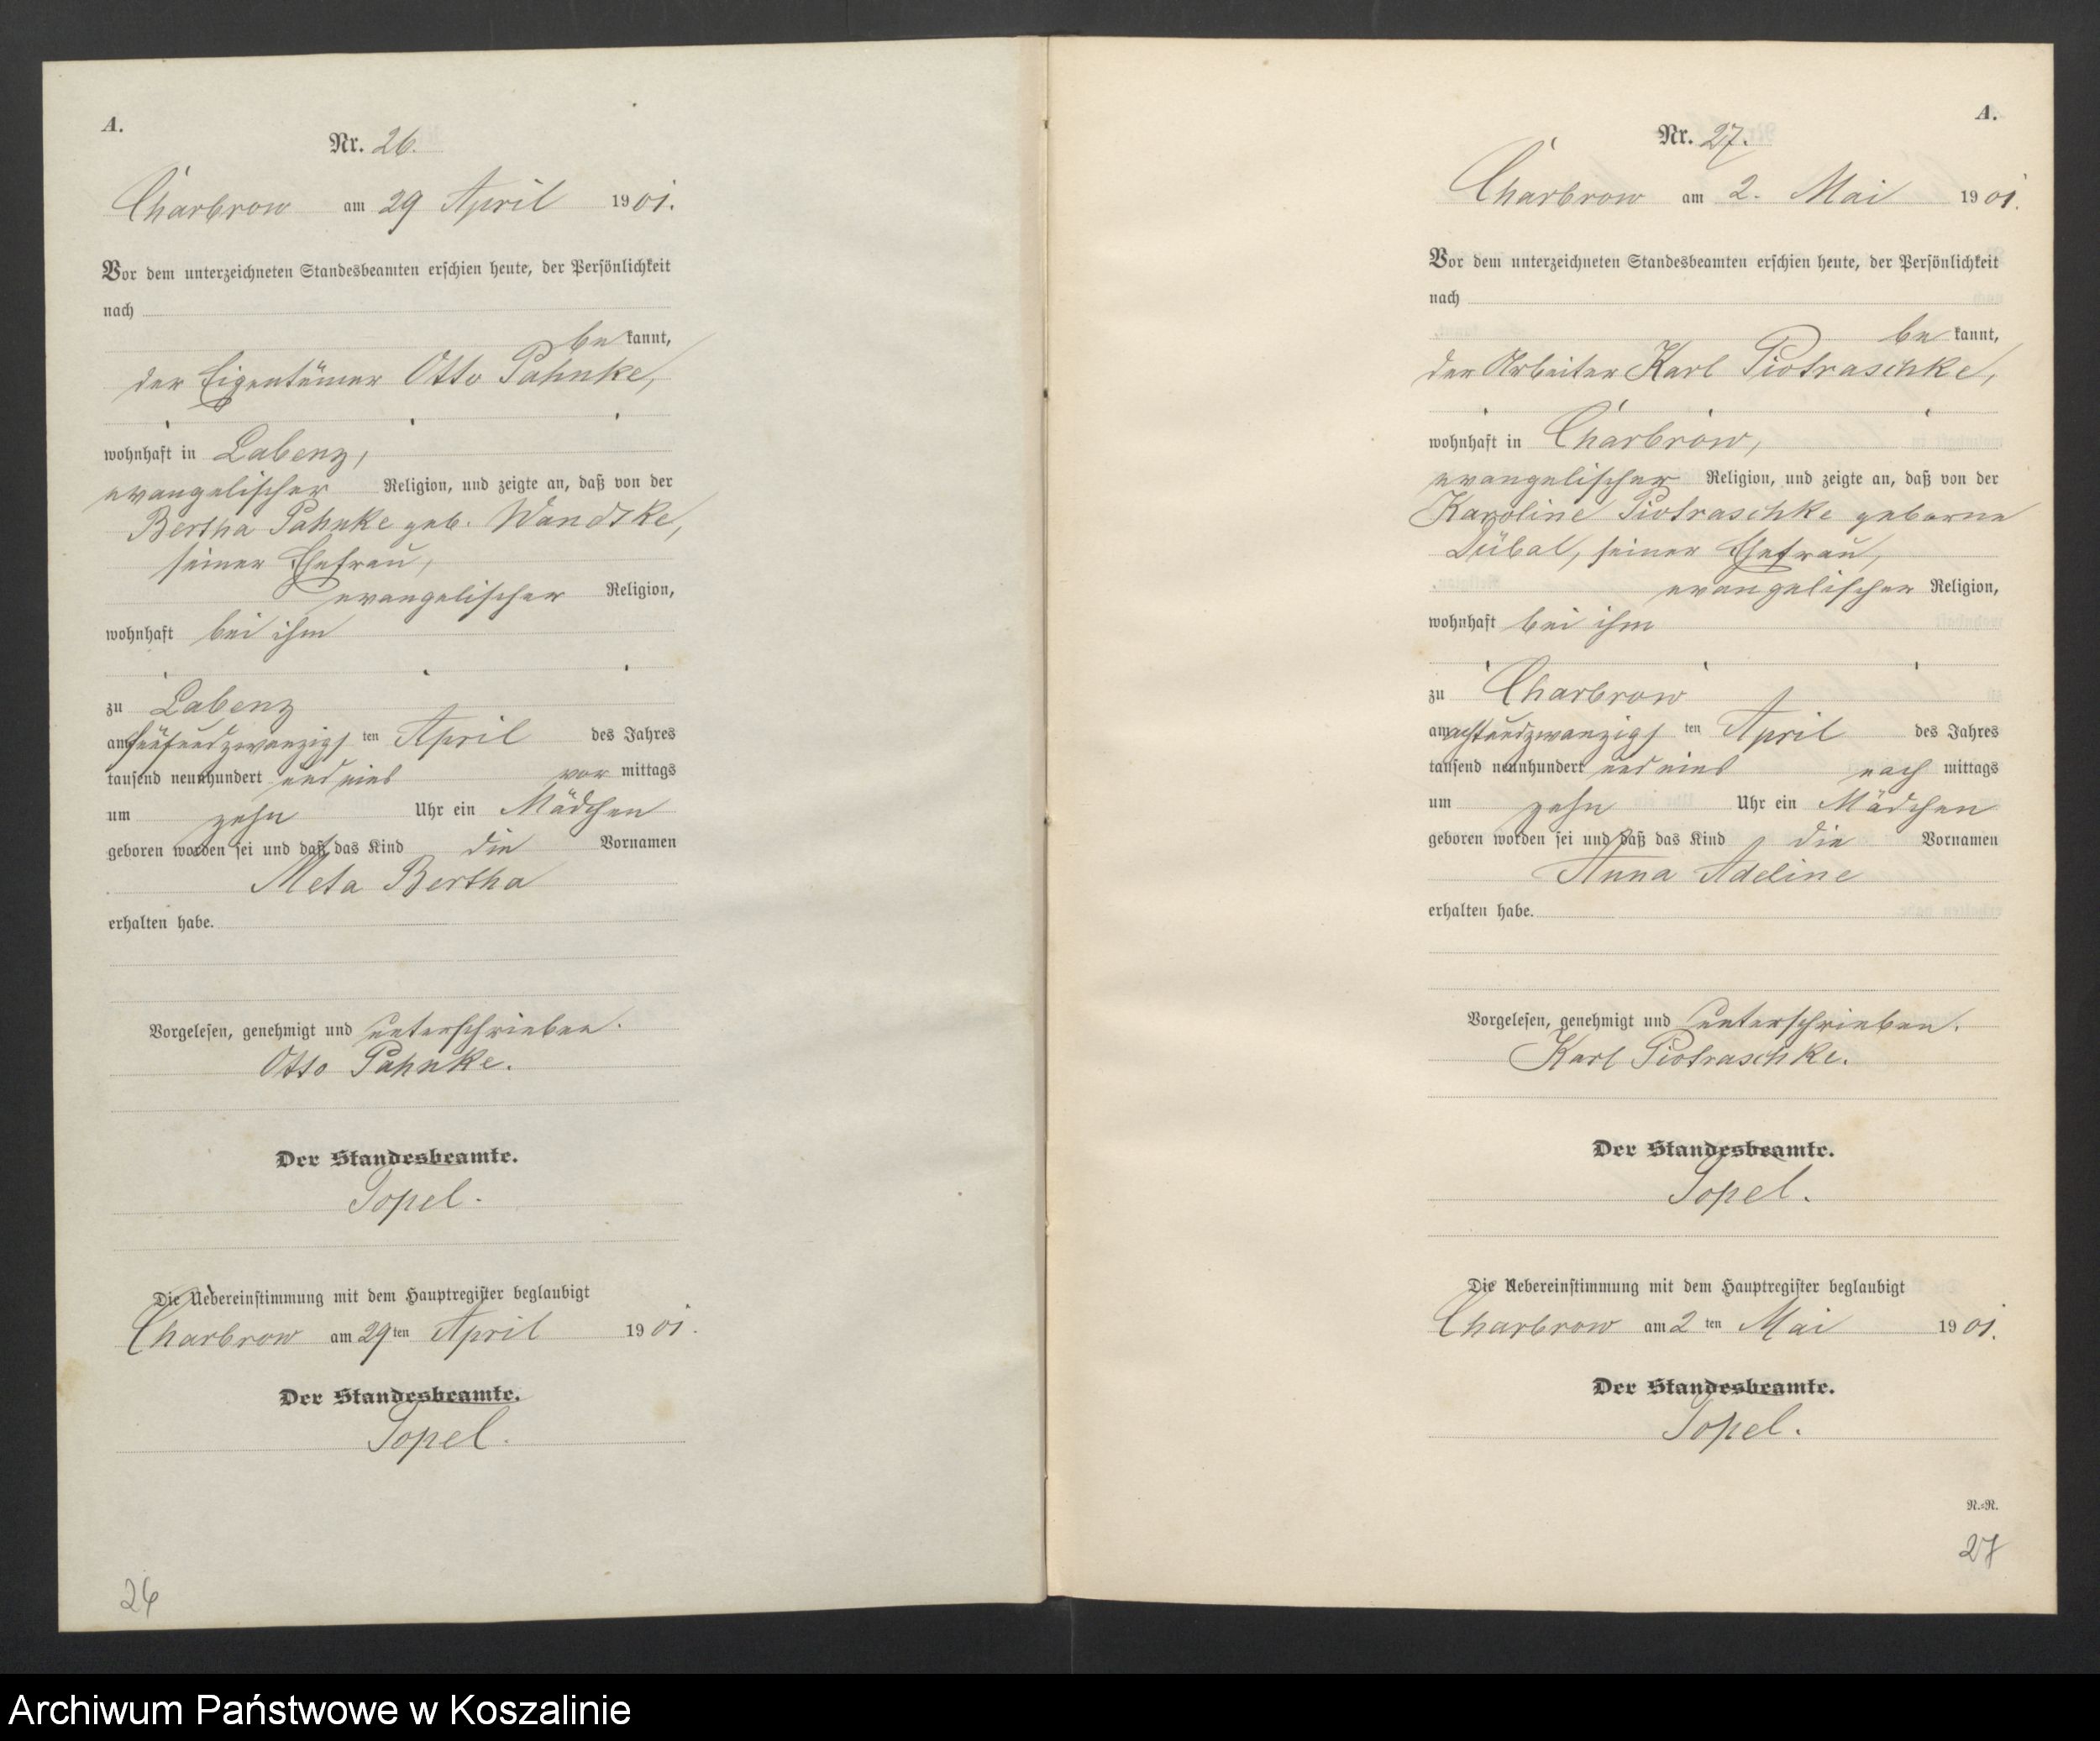 A.
Nr. 26.
Charbrow am 29 April 1901.
Vor dem unterzeichneten Standesbeamten erschien heute, der Persönlichkeit
nach
be kannt,
der Eigentümer Otto Pahnke,
wohnhaft in Labenz,
evangelischer Religion, und zeigte an, daß von der
Bertha Pahnke geb. Wandtke,
seiner Ehefrau,
evangelischer Religion,
wohnhaft bei ihm
zu Labenz
am fünfundzwanzigs ten April des Jahres
tausend neunhundert und eins vor mittags
um zehn Uhr ein Mädchen
geboren worden sei und daß das Kind die Vornamen
Meta Bertha
erhalten habe.
Vorgelesen, genehmigt und unterschrieben.
Otto Pahnke.
Der Standesbeamte.
Topel.
Die Uebereinstimmung mit dem Hauptregister beglaubigt
Charbrow am 29ten April 1901.
Der Standesbeamte.
Topel.
26
A.
Nr. 27.
Charbrow am 2. Mai 1901.
Vor dem unterzeichneten Standesbeamten erschien heute, der Persönlichkeit
nach
be kannt,
der Arbeiter Karl Piotraschke,
wohnhaft in Charbrow,
evangelischer Religion, und zeigte an, daß von der
Karoline Piotraschke geborne
Dübal, seiner Ehefrau,
evangelischer Religion,
wohnhaft bei ihm
zu Charbrow
am achtundzwanzigs ten April des Jahres
tausend neunhundert und eins nach mittags
um zehn Uhr ein Mädchen
geboren worden sei und daß das Kind die Vornamen
Anna Adeline
erhalten habe.
Vorgelesen, genehmigt und unterschrieben.
Karl Piotraschke.
Der Standesbeamte.
Topel.
Die Uebereinstimmung mit dem Hauptregister beglaubigt
Charbrow am 2 ten Mai 1901.
Der Standesbeamte.
Topel.
N.=R.
27
Archiwum Państwowe w Koszalinie